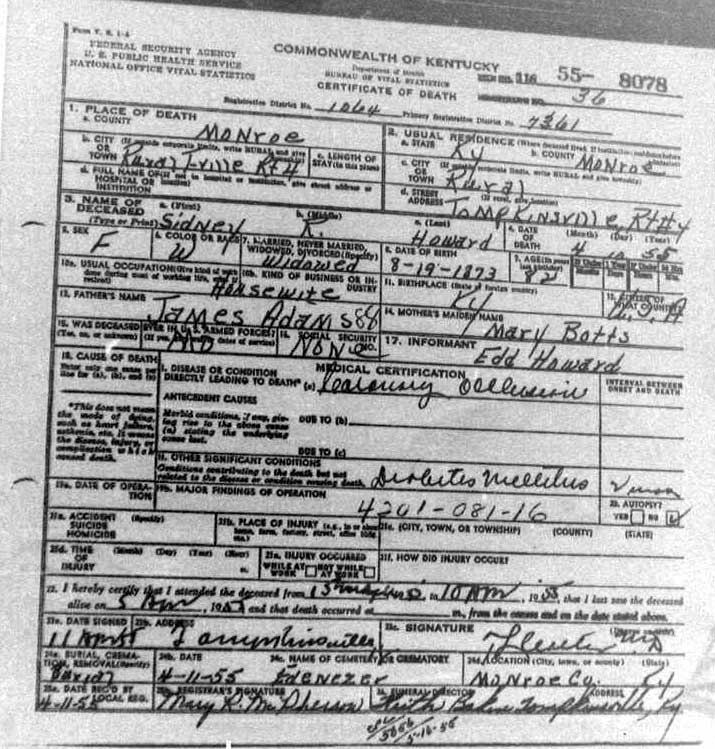 Form V. S. 1-A
FEDERAL SECURITY AGENCY
U. S. PUBLIC HEALTH SERVICE
NATIONAL OFFICE VITAL STATISTICS
COMMONWEALTH OF KENTUCKY
Department of Health
BUREAU OF VITAL STATISTICS
CERTIFICATE OF DEATH
116 55- 8078
36
Registration District No. 1064 Primary Registration District No. 7361
1. PLACE OF DEATH
a. COUNTY Monroe
2. USUAL RESIDENCE
a. STATE Ky b. COUNTY Monroe
b. CITY OR TOWN Rural T-ville Rt 4
c. LENGTH OF STAY (in this place)
c. CITY OR TOWN Rural
d. FULL NAME OF HOSPITAL OR INSTITUTION
d. STREET ADDRESS Tompkinsville, Rt #4
3. NAME OF DECEASED (Type or Print)
a. (First) Sidney b. (Middle) R. c. (Last) Howard
4. DATE OF DEATH (Month) (Day) (Year) 4 10 55
5. SEX F
6. COLOR OR RACE W
7. MARRIED, NEVER MARRIED, WIDOWED, DIVORCED (Specify) Widowed
8. DATE OF BIRTH 8-19-1873
7. AGE 82
10a. USUAL OCCUPATION Housewife
10b. KIND OF BUSINESS OR INDUSTRY
11. BIRTHPLACE (State or foreign country) Ky
12. CITIZEN OF WHAT COUNTRY
13. FATHER'S NAME James Adams
14. MOTHER'S MAIDEN NAME Mary Botts
15. WAS DECEASED EVER IN U. S. ARMED FORCES? No
16. SOCIAL SECURITY NO. None
17. INFORMANT Edd Howard
18. CAUSE OF DEATH
Enter only one cause per line for (a), (b), and (c)
MEDICAL CERTIFICATION
INTERVAL BETWEEN ONSET AND DEATH
I. DISEASE OR CONDITION DIRECTLY LEADING TO DEATH* (a) Coronary Occlusion
ANTECEDENT CAUSES
*This does not mean the mode of dying, such as heart failure, asthenia, etc. It means the disease, injury, or complication which caused death.
Morbid conditions, if any, giving rise to the above cause (a) stating the underlying cause last.
DUE TO (b)
DUE TO (c)
II. OTHER SIGNIFICANT CONDITIONS
Conditions contributing to the death but not related to the disease or condition causing death.
Diabetes Mellitus
19a. DATE OF OPERATION
19b. MAJOR FINDINGS OF OPERATION
4201-081-16
20. AUTOPSY?
YES NO
21a. ACCIDENT SUICIDE HOMICIDE (Specify)
21b. PLACE OF INJURY
21c. (CITY, TOWN, OR TOWNSHIP) (COUNTY) (STATE)
21d. TIME OF INJURY (Month) (Day) (Year) (Hour) m.
21e. INJURY OCCURRED
WHILE AT WORK NOT WHILE AT WORK
21f. HOW DID INJURY OCCUR?
22. I hereby certify that I attended the deceased from to 10 Apr, 1955 that I last saw the deceased
alive on 5 Apr, 195 and that death occurred at m., from the causes and on the date stated above.
23a. DATE SIGNED 23b. ADDRESS 23c. SIGNATURE
Tompkinsville MD
24a. BURIAL, CREMATION, REMOVAL (Specify) Burial
24b. DATE 4-11-55
24c. NAME OF CEMETERY OR CREMATORY Ebenezer
24d. LOCATION (City, town, or county) (State) Monroe Co. Ky
25a. DATE REC'D BY LOCAL REG. 4-11-55
25b. REGISTRAR'S SIGNATURE Mary R. McPherson
26. FUNERAL DIRECTOR ADDRESS Tompkinsville, Ky
5-16-55